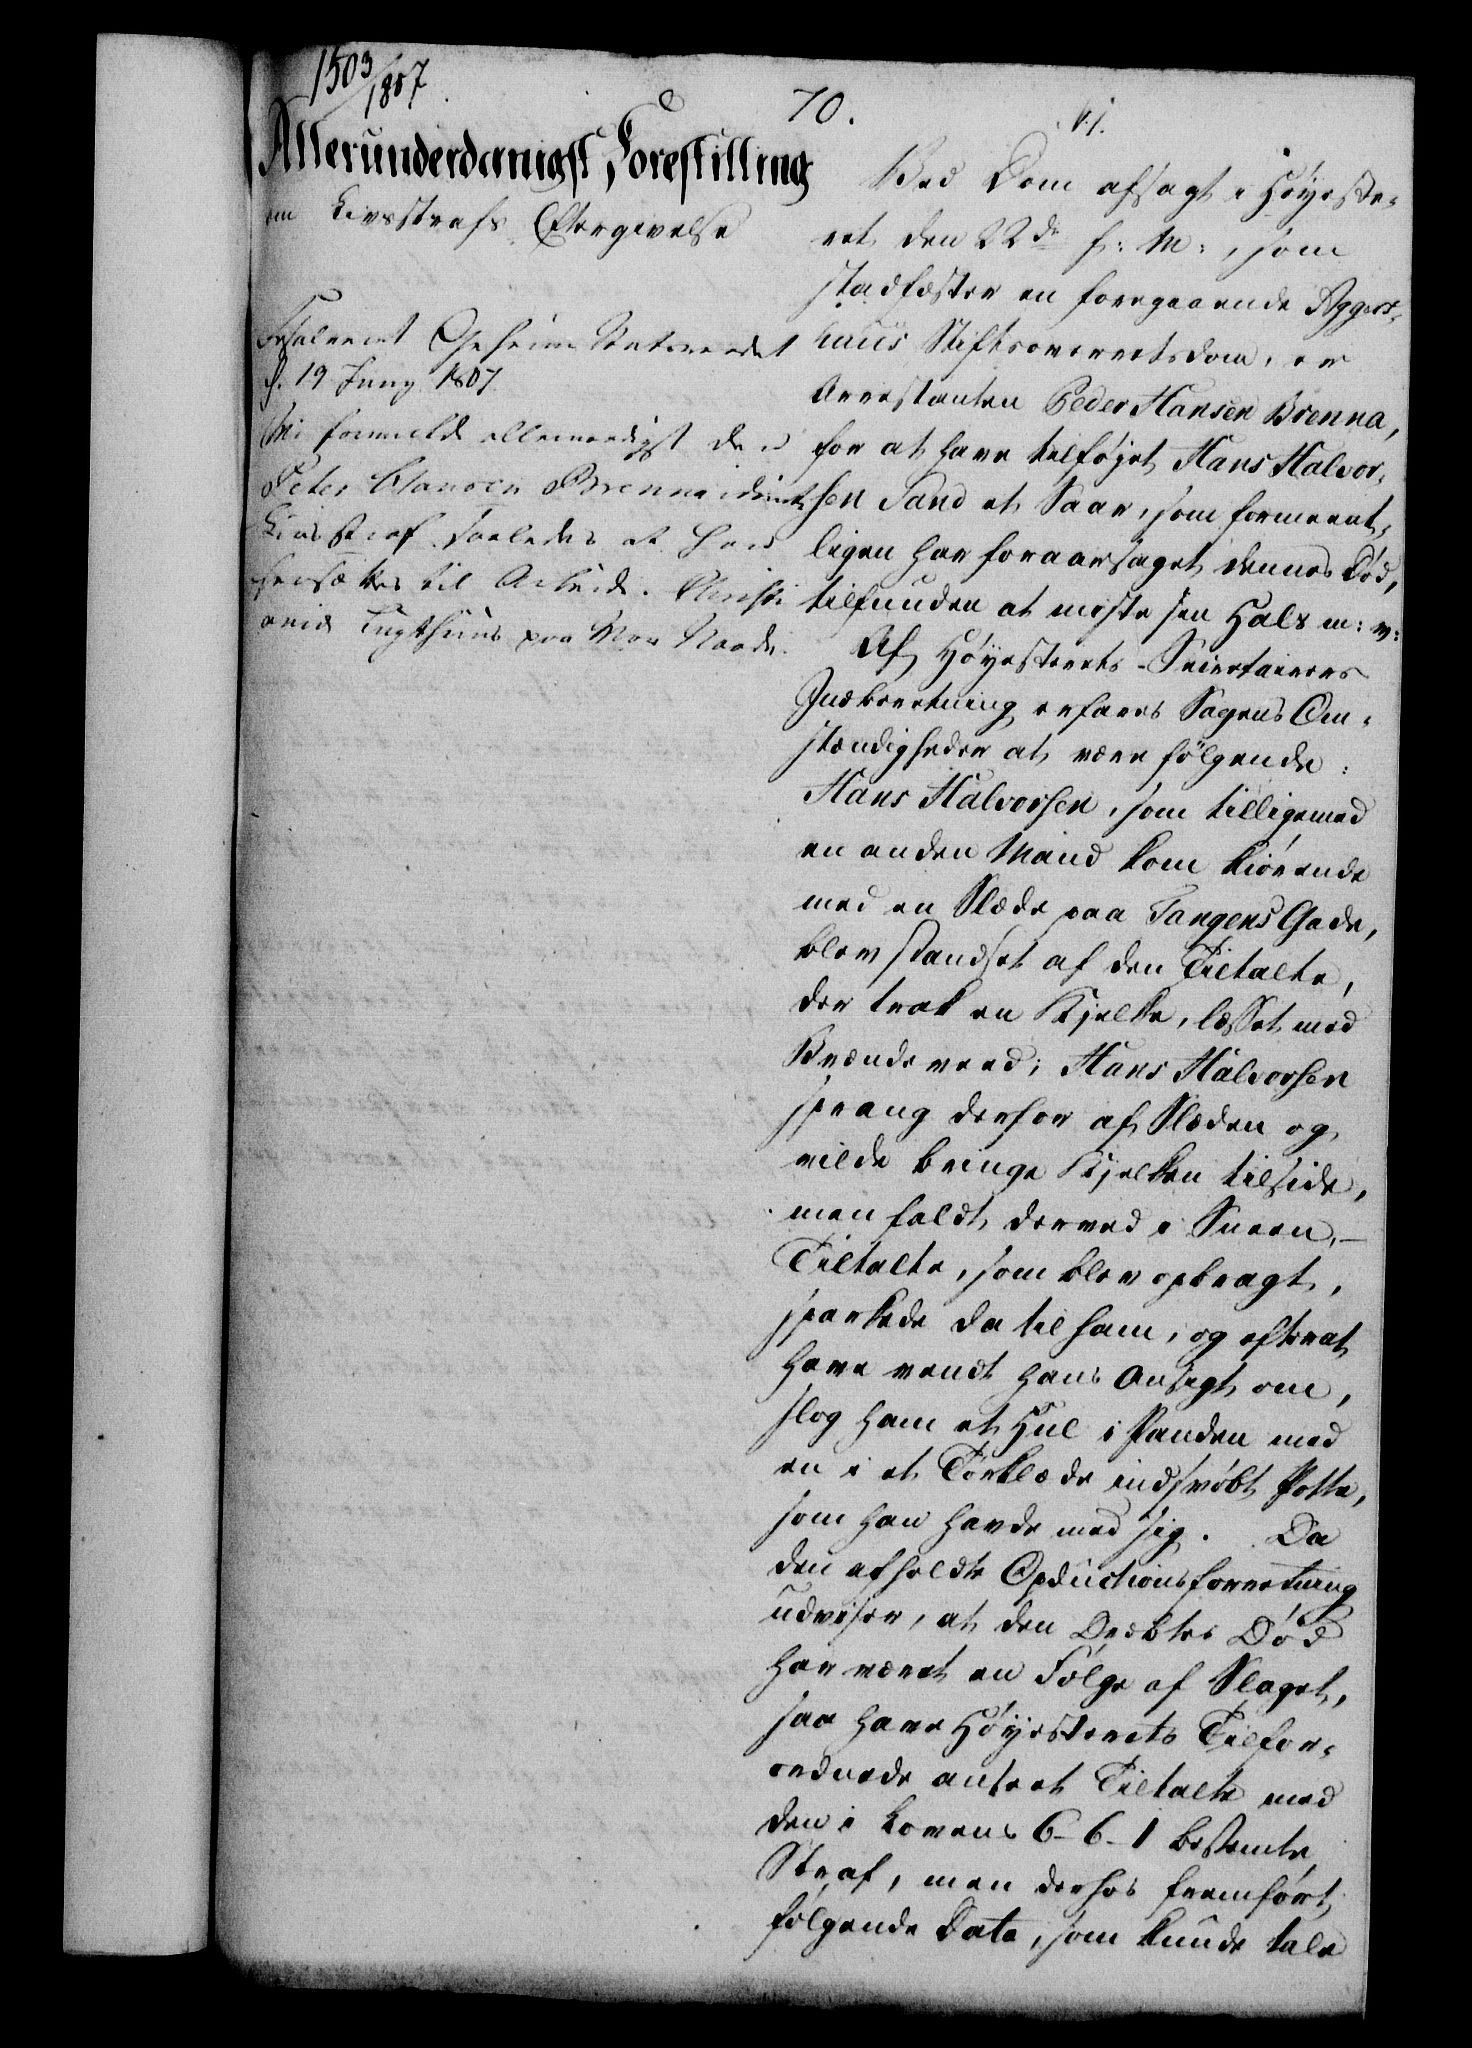 1503/1807
70.
Allerunderdanigst Forestilling
om Livsstrafs Eftergivelse
Resolveret Geheime Statsraadet
d. 19 Juny 1807
Vi formilde allernaadigst den
Peter Hansen Brenna idømte
Livsstraf saaledes at han
hensættes til Arbeide i Christi
ania Tugthuus paa Vor Naade.
Ved Dom afsagt i Høyeste-
ret den 22de f: M:, som
stadfæster en foregaaende Aggers-
huus Stiftsoverretsdom, er
Arrestanten Peder Hansen Brenna,
for at have tilføjet Hans Halvor-
sen Sand et Saar, som formeent-
ligen har foraarsaget dennes Død,
tilfunden at miste sin Hals m: v:
Af Høyesterets-Secretairens
Indberetning erfares Sagens Om-
stændigheder at være følgende:
Hans Halvorsen, som tilligemed
en anden Mand kom kiørende
med en Slæde paa Tangens Gade,
blev standset af den Tiltalte,
der trak en Kjelke, læsset med
Brændeveed; Hans Halvorsen
sprang derfor af Slæden og
vilde bringe Kjelken tilside,
men faldt derved i Sneen,—
Tiltalte, som blev opbragt,
sparkede da til ham, og efterat
have vendt hans Ansigt om,
slog ham et Hul i Panden med
en i et Tørklæde indsvøbt Potte,
som han havde med sig. Da
den afholdte Obductionsforretning
udviser, at den Dræbtes Død
har været en Følge af Slaget,
saa have Høyesterets Tilfor-
ordnede anseet Tiltalte med
den i Lovens 6-6-1 bestemte
Straf, men derhos fremført
følgende Data, som kunde tale